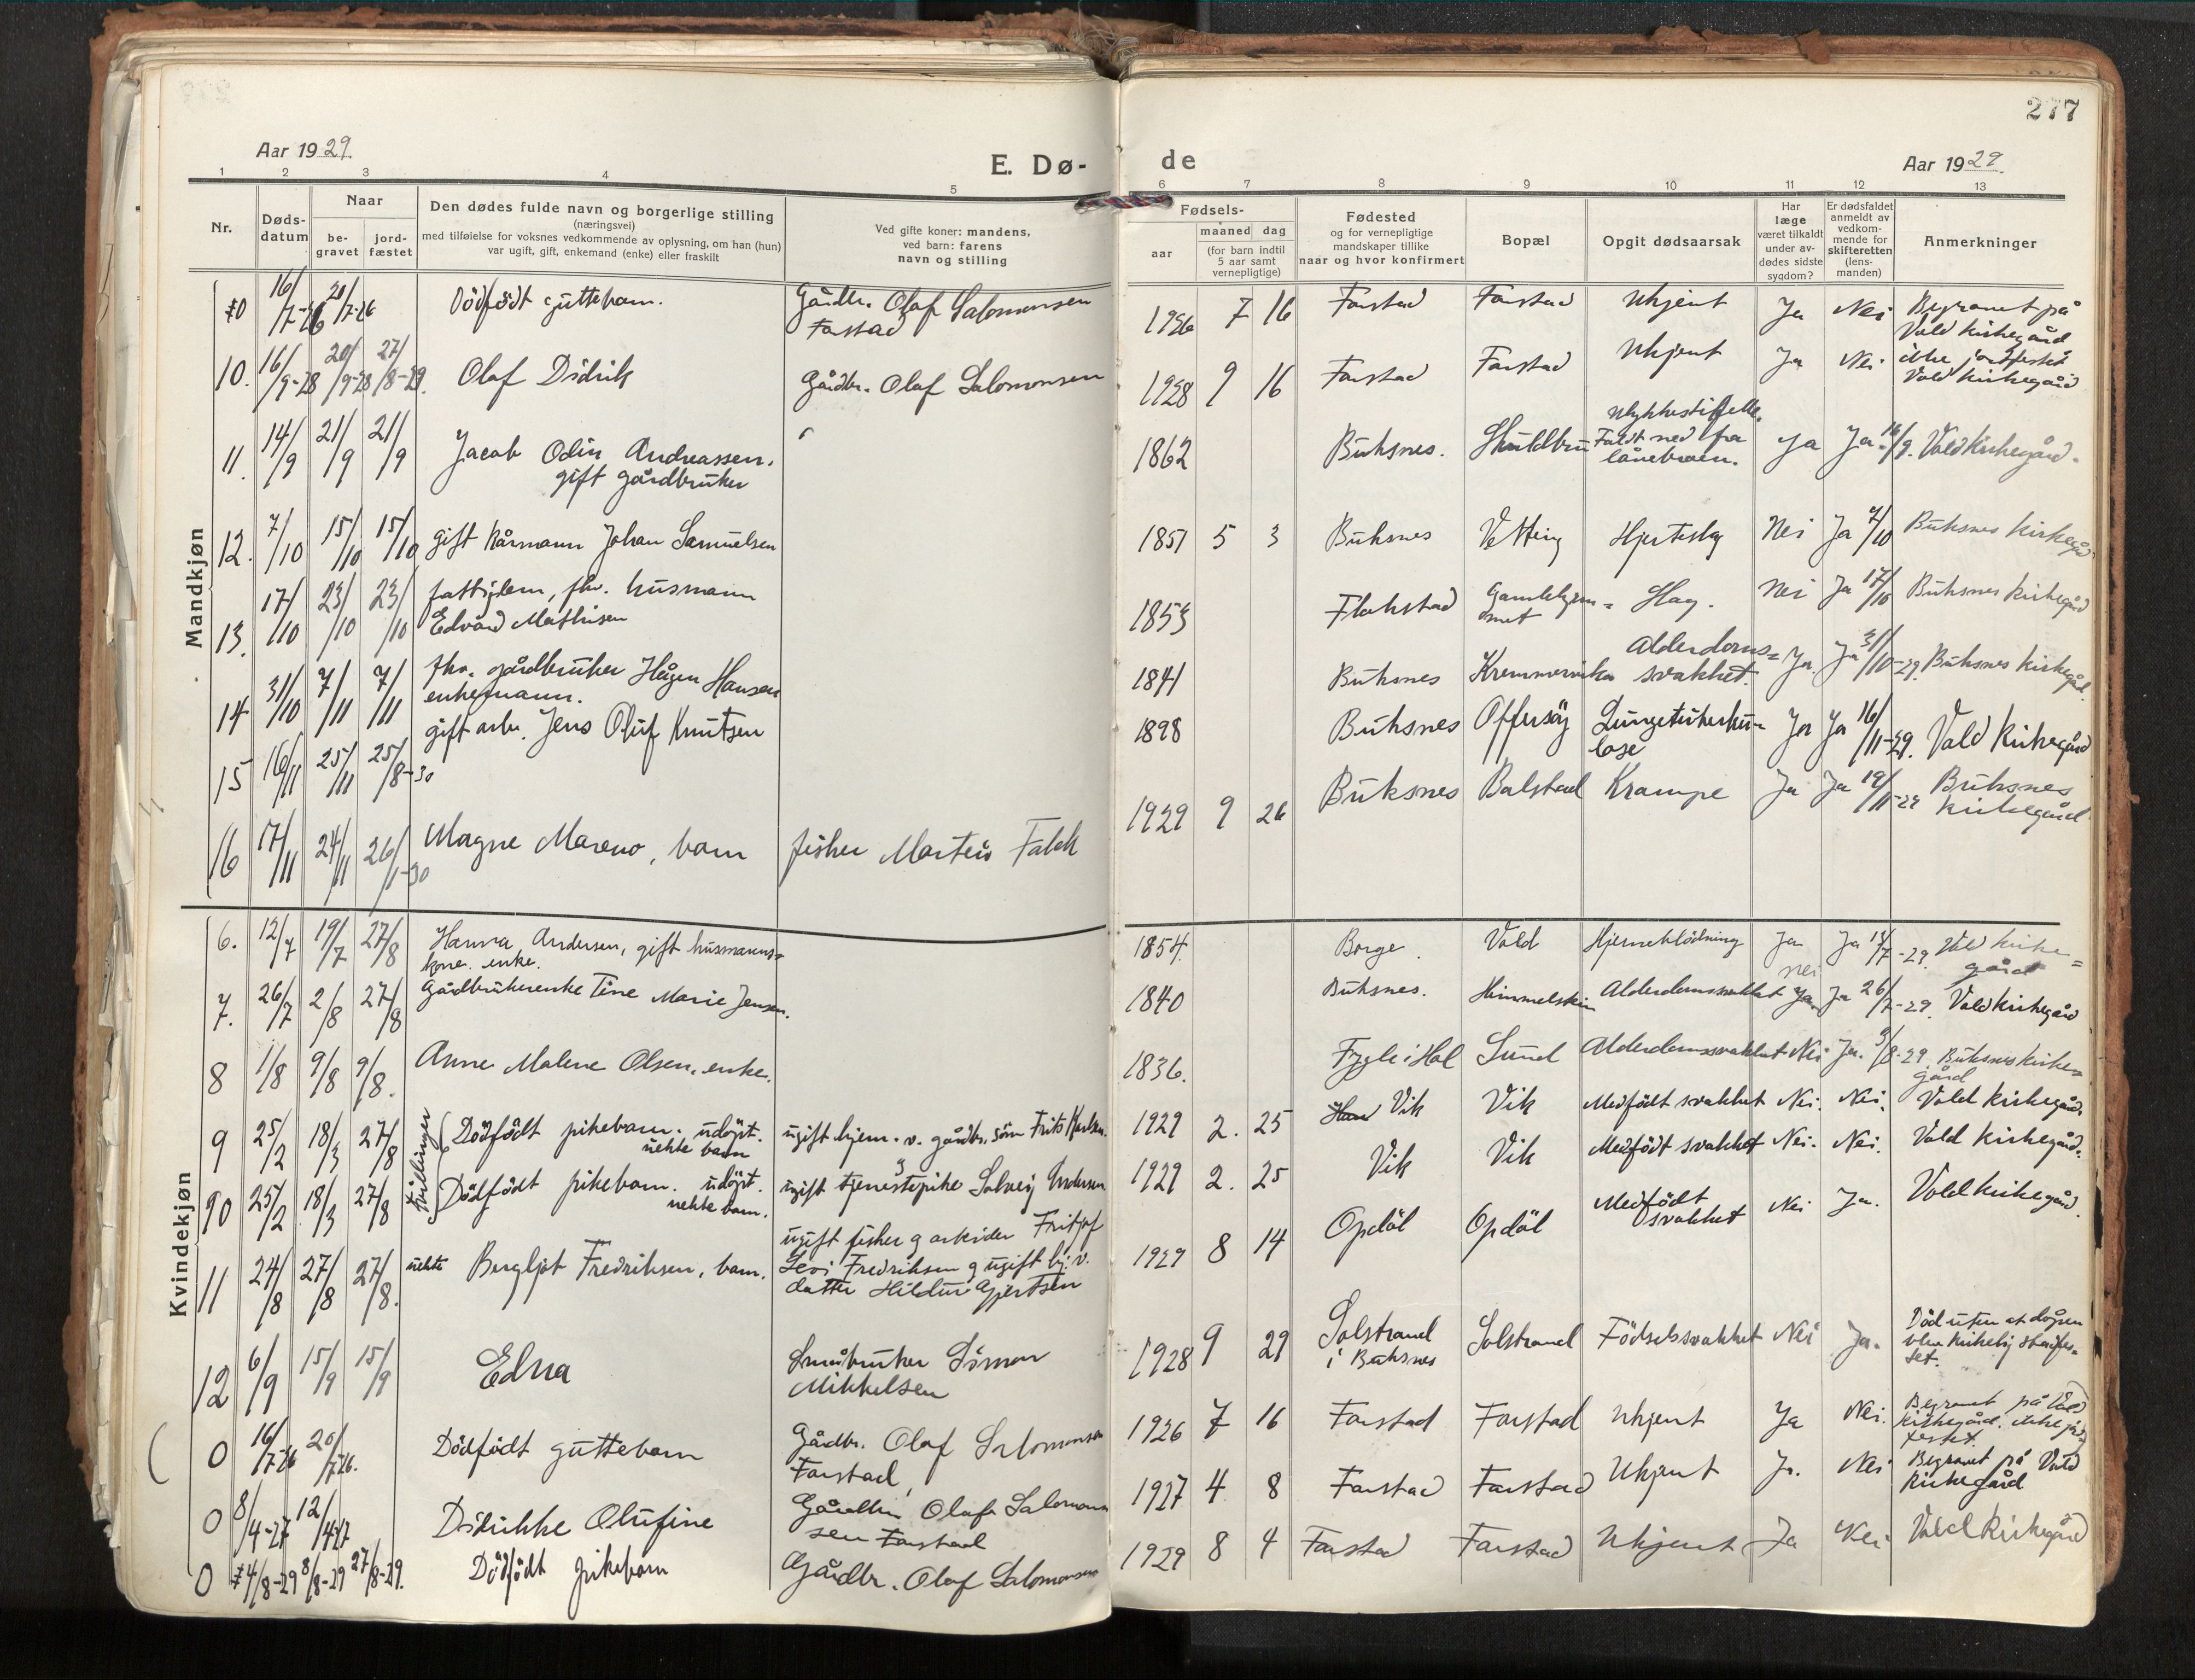 277
Aar 1929.
E. Dø-
de
Aar 1929.
1 2 3 4 5 6 7 8 9 10 11 12 13
Nr.
Døds-
datum
Naar
be-
gravet
jord-
fæstet
Den dødes fulde navn og borgerlige stilling
(næringsvei)
med tilføielse for voksnes vedkommende av oplysning, om han (hun)
var ugift, gift, enkemand (enke) eller fraskilt
Ved gifte koner: mandens,
ved barn: farens
navn og stilling
Fødsels-
aar
maaned dag
(for barn indtil
5 aar samt
vernepligtige)
Fødested
og for vernepligtige
mandskaper tillike
naar og hvor konfirmert
Bopæl
Opgit dødsaarsak
Har
læge
været tilkaldt
under av-
dødes sidste
sygdom?
Er dødsfaldet
anmeldt av
vedkom-
mende for
skifteretten
(lens-
manden)
Anmerkninger
Mandkjøn
0 16/7-26 20/7-26 Dödfödt guttebarn. Gårdbr. Olaf Salomonsen
Farstad
1926 7 16 Farstad Farstad Ukjent Ja Nei Begravet på
Vold kirkegård
ikke jordfestet
10. 16/9-28 20/9-28 27/8-29. Olaf Didrik Gårdbr. Olaf Salomonsen 1928 9 16 Farstad Farstad Ukjent Ja Nei Vold kirkegård
11. 14/9 21/9 21/9 Jacob Odin Andreassen.
gift gårdbruker
1862 Buksnes. Skuldbru Ulykkestilfelle.
Faldt ned fra
låvebroen.
Ja Ja 16/9. Vold Kirkegård.
12. 7/10 15/10 15/10 gift kårmann Johan Samuelsen 1851 5 3 Buksnes Vetting Hjerteslag Nei Ja 7/10 Buksnes kirkegård
13. 17/10 23/10 23/10 fattiglem, fhv. husmann
Edvard Mathisen
1853 Flakstad Gamlehjem=
met
Slag. Nei Ja 17/10 Buksnes kirkegård
14 31/10 7/11 7/11 fhv. gårdbruker Hågen Hansen
enkemann.
1841 Buksnes Kremmervika Alderdoms=
svakhet.
Ja Ja 31/10-29. Buksnes kirkegård
15 16/11 25/11 25/8-30 gift arb. Jens Oluf Knutsen 1898 Buksnes Offersöy Lungetuberku-
lose
Ja Ja 16/11-29. Vold Kirkegård
16 17/11 24/11 26/1-30 Magne Mareno, barn fisker Martin Falck 1929 9 26 Buksnes Balstad Krampe Ja Ja 19/11-29 Buksnes
kirkegård
Kvindekjøn
6. 12/7 19/7 27/8 Hanna Andersen, gift husmanns=
kone. enke.
1854. Borge. Vold Hjerneblödning Ja Ja 13/7-29. Vold kirke=
gård
7. 26/7 2/8 27/8 Gårdbrukerenke Tine Marie Jensen. 1840 Buksnes. Himmelstein Alderdomssvakhet nei
Ja Ja 26/7-29. Vold kirkegård
8 1/8 9/8 9/8. Anne Malene Olsen, enke. 1836. Fygle i Hol Sund Alderdomssvakhet Nei Ja. 3/8-29. Buksnes kirke=
gård
Tvillinger
9 25/2 18/3 27/8 Dödfödt pikebarn. udöpt.
uekte barn
ugift hjem. v. gårdbr. sönn Frits Karlsen. 1929 2. 25 Vik Vik Medfödt svakhet Nei. Nei. Vold kirkegård.
10 25/2 18/3 27/8 Dödfödt pikebarn. udöpt.
uekte barn.
ugift tjenestepike Solveig Andersen 1929 2. 25 Vik Vik Medfödt svakhet Nei. Nei. Vold kirkegård.
11 24/8 27/8 27/8. uekte Bergljot Fredriksen, barn. ugift fisker og arbeider Fritjof
Levi Fredriksen og ugift hj. v.
datter Hildur Gjertsen
1929 8 14 Opdöl Opdöl Medfödt
svakhet
Nei Ja. Vold kirkegård.
12 6/9 15/9 15/9 Edna Småbruker Simon
Mikkelsen
1928 9 29 Solstrand
i Buksnes
Solstrand Födselssvakhet Nei Ja. Död uten at dåpen
blev kirkelig stadfes=
tet.
0 16/7-26 20/7-26. Dödfödt guttebarn Gårdbr. Olaf Salomonsen
Farstad,
1926 7 16 Farstad Farstad Ukjent Ja Nei. Begravet på Vold
kirkegård. ikke jord
festet.
0 8/4-27 12/4-27 Didrikke Olufine Gårdbr. Olaf Salomon
sen Farstad
1927 4 8 Farstad Farstad Ukjent Ja. Nei Begravet på Vold
kirkegård
0 4/8-29 8/8-29 27/8-29. Dödfödt pikebarn Gårdbr. Olaf Salomonsen 1929 8 4 Farstad Farstad Ukjent Ja Nei Vold Kirkegård